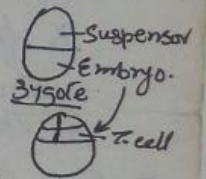 Suspensor
Embryo.
Zygote
T.cell